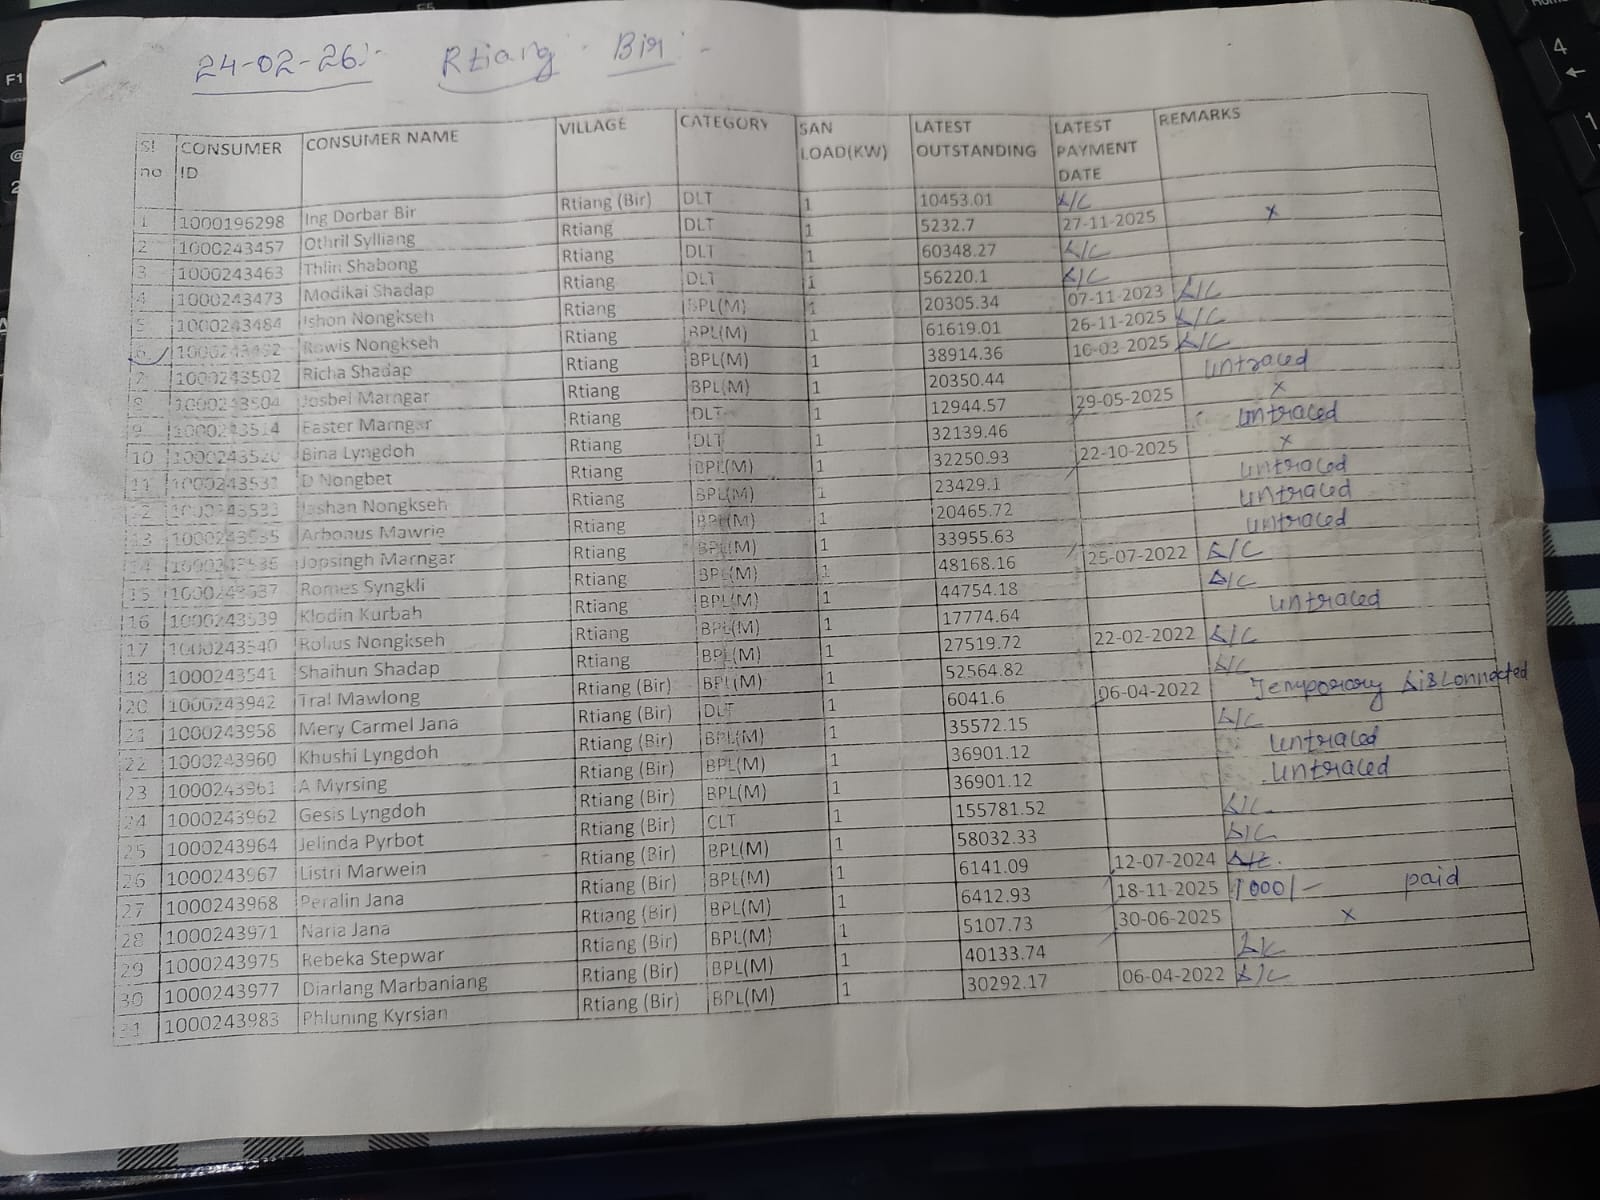 24-02-26:- Rtiang Bir :-
Sl no CONSUMER ID CONSUMER NAME VILLAGE CATEGORY SAN LOAD(KW) LATEST OUTSTANDING LATEST PAYMENT DATE REMARKS
1 1000196298 Ing Dorbar Bir Rtiang (Bir) DLT 1 10453.01 D/C
2 1000243457 Othril Sylliang Rtiang DLT 1 5232.7 27-11-2025 x
3 1000243463 Thlin Shabong Rtiang DLT 1 60348.27 D/C
4 1000243473 Modikai Shadap Rtiang DLT 1 56220.1 D/C
5 1000243484 Ishon Nongkseh Rtiang BPL(M) 1 20305.34 07-11-2023 D/C
6 1000243492 Rawis Nongkseh Rtiang BPL(M) 1 61619.01 26-11-2025 D/C
7 1000243502 Richa Shadap Rtiang BPL(M) 1 38914.36 10-03-2025 D/C
8 1000243504 Josbel Marngar Rtiang BPL(M) 1 20350.44 untraced
9 1000243514 Easter Marngar Rtiang DLT 1 12944.57 29-05-2025 x
10 1000243520 Bina Lyngdoh Rtiang DLT 1 32139.46 untraced
11 1000243531 D Nongbet Rtiang BPL(M) 1 32250.93 22-10-2025 x
12 1000243533 Nongkseh Rtiang BPL(M) 1 23429.1 untraced
13 1000243535 Arbonus Mawrie Rtiang BPL(M) 1 20465.72 untraced
14 1000243536 Jopsingh Marngar Rtiang BPL(M) 1 33955.63 untraced
15 1000243537 Romes Syngkli Rtiang BPL(M) 1 48168.16 25-07-2022 D/C
16 1000243539 Klodin Kurbah Rtiang BPL(M) 1 44754.18 D/C
17 1000243540 Rolius Nongkseh Rtiang BPL(M) 1 17774.64 untraced
18 1000243541 Shaihun Shadap Rtiang BPL(M) 1 27519.72 22-02-2022 D/C
20 1000243942 Tral Mawlong Rtiang (Bir) BPL(M) 1 52564.82 D/C
21 1000243958 Mery Carmel Jana Rtiang (Bir) DLT 1 6041.6 06-04-2022 Temporary disconnected
22 1000243960 Khushi Lyngdoh Rtiang (Bir) BPL(M) 1 35572.15 D/C
23 1000243961 A Myrsing Rtiang (Bir) BPL(M) 1 36901.12 untraced
24 1000243962 Gesis Lyngdoh Rtiang (Bir) BPL(M) 1 36901.12 untraced
25 1000243964 Jelinda Pyrbot Rtiang (Bir) CLT 1 155781.52 D/C
26 1000243967 Listri Marwein Rtiang (Bir) BPL(M) 1 58032.33 D/C
27 1000243968 Peralin Jana Rtiang (Bir) BPL(M) 1 6141.09 12-07-2024 D/C.
28 1000243971 Naria Jana Rtiang (Bir) BPL(M) 1 6412.93 18-11-2025 1000/- paid
29 1000243975 Rebeka Stepwar Rtiang (Bir) BPL(M) 1 5107.73 30-06-2025 x
30 1000243977 Diarlang Marbaniang Rtiang (Bir) BPL(M) 1 40133.74 D/C
31 1000243983 Phluning Kyrsian Rtiang (Bir) BPL(M) 1 30292.17 06-04-2022 D/C